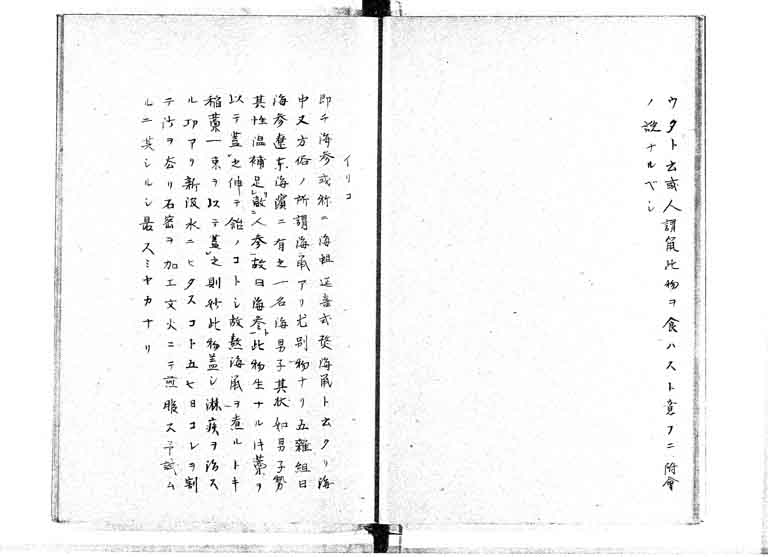 ウタト云或人謂鼠此物ヲ食ハスト意フニ附會
ノ説ナルベシ
イリコ
即チ海参或称ニ海蛆延喜式熬海鼠ト云クリ海
中又方俗ノ所謂海鼠アリ尤別物ナリ五雑組曰
海参遼東海濱ニ有之一名海男子其状如男子勢
其性温補足敵人参故曰海参此物生ナル時藁ヲ
以テ蓋之伸テ飴ノコトシ故熬海鼠ヲ煮ルトキ
稲藁一束ヲ以テ蓋之則 此物蓋シ淋疾ヲ治ス
ル功アリ新汲水ニヒタスコト五七日コレヲ割
テ 沙ヲ去リ石密ヲ加エ文火ニテ煎服ス予試ム
ルニ其シルシ最スミヤカナリ